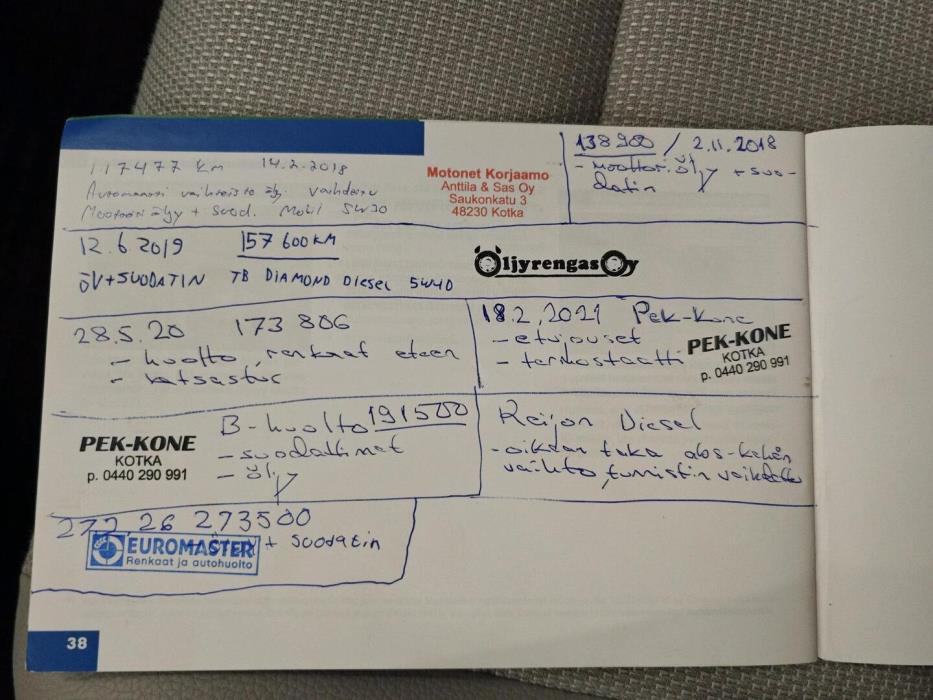 117477 km 14.2.2018
Automaatti vaihteisto öljy. vaihdettu
Moottori öljy + suod. Mobil 5W30
Motonet Korjaamo
Anttila & Sas Oy
Saukonkatu 3
48230 Kotka
138900 / 2.11.2018
- moottoriöljy + suo-
datin
12.6 2019 157 600 KM
ÖV+SUODATIN TB DIAMOND DIESEL 5W40
Öljyrengas Oy
28.5.20 173 806
- huolto, renkaat eteen
- katsastus
18.2.2021 Pek-Kone
- etujouset
- termostaatti
PEK-KONE
KOTKA
p. 0440 290 991
PEK-KONE
KOTKA
p. 0440 290 991
B-huolto 191500
- suodattimet
- öljy
Reijon Diesel
- oikean taka abs-kehän
vaihto, tunnistin
272.26 273500
+ suodatin
EUROMASTER
Renkaat ja autohuolto
38